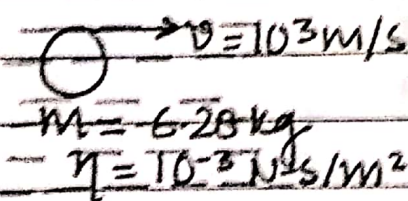 v = 10³ m/s
m = 6.28 kg
η = 10⁻³ N-s/m²